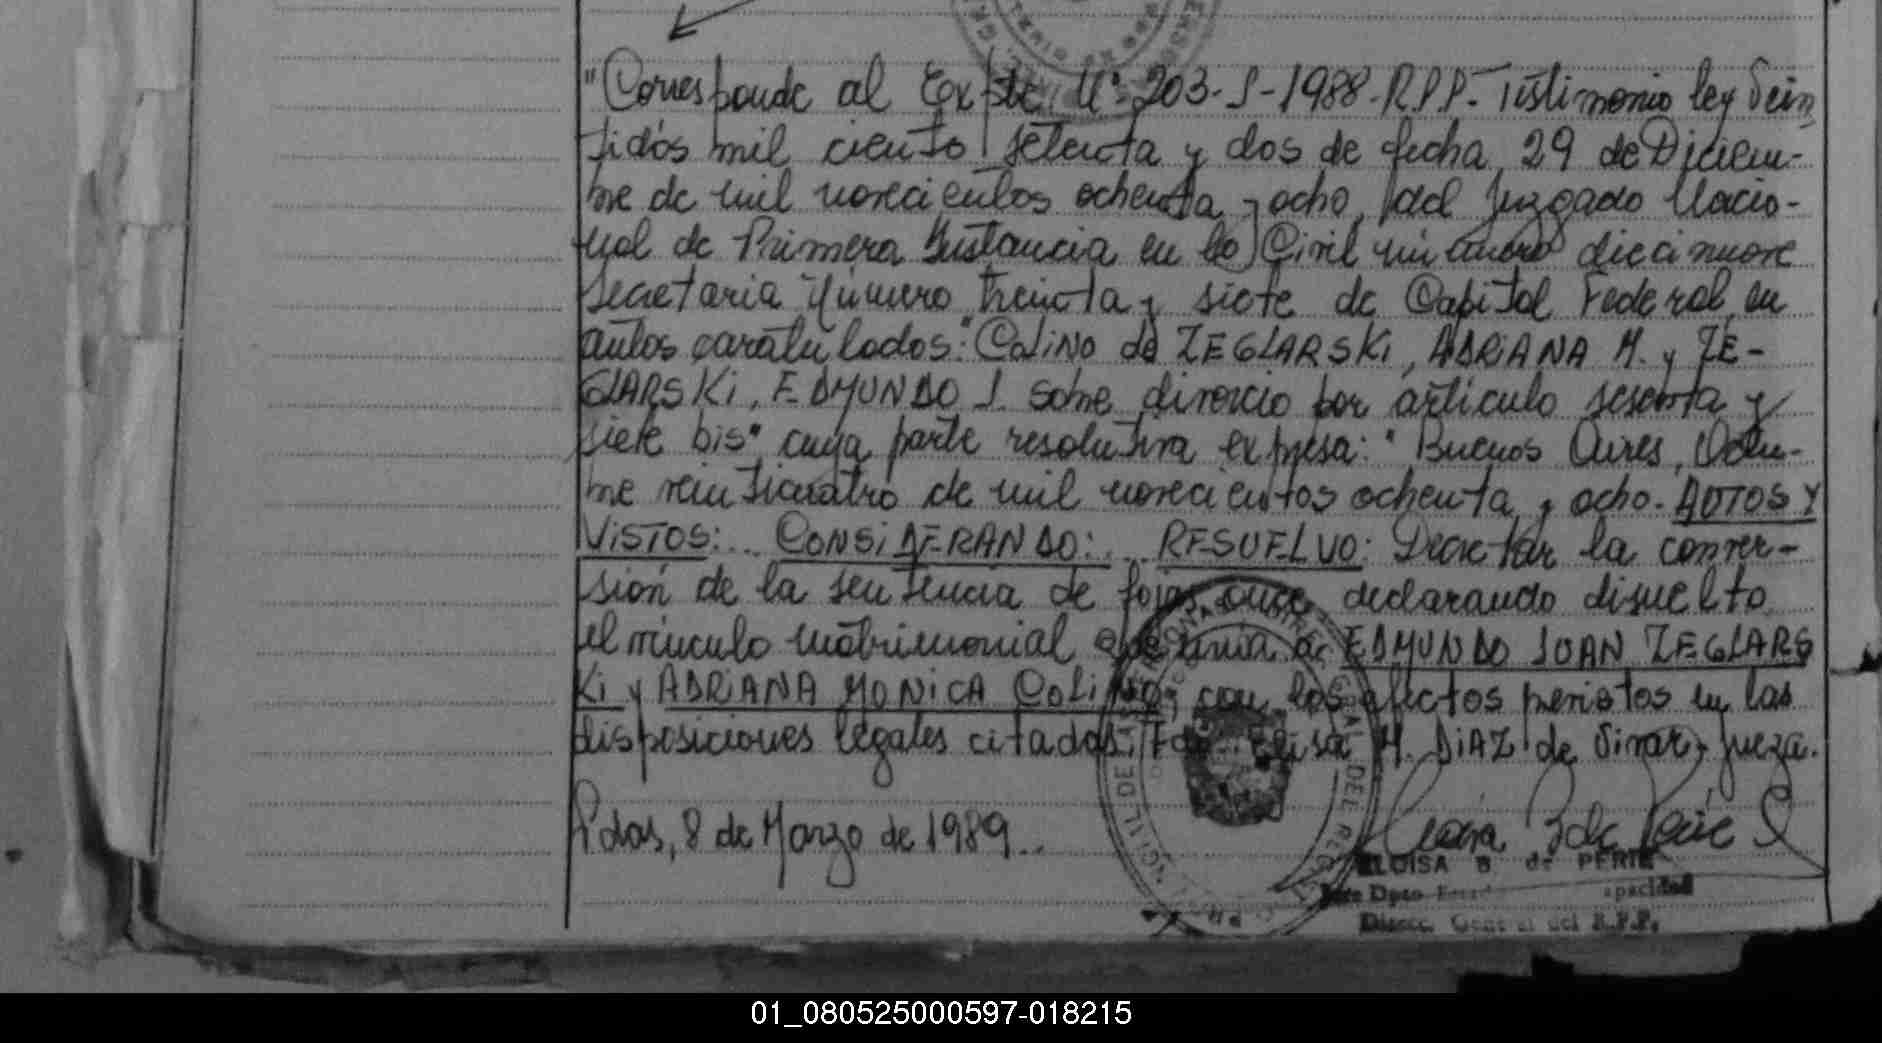 "Corresponde al Expte N° 203-S-1988-R.P.P.- Testimonio ley Vein
tidós mil ciento setenta y dos de fecha 29 de Diciem-
bre de mil novecientos ochenta y ocho, del Juzgado Nacio-
nal de Primera Instancia en lo Civil número diecinueve
Secretaria Número treinta y siete de Capital Federal, en
autos caratulados: "Colino de ZEGLARSKi, ADRiANA M. y ZE-
GLARSKi, EDMUNDO J. sobre divorcio por artículo sesenta y
siete bis" cuya parte resolutiva expresa: "Buenos Aires, Octu-
bre veinticuatro de mil novecientos ochenta y ocho. AUTOS Y
ViSTOS:... CONSiDERANDO:... RESUELVO: Decretar la conver-
sión de la sentencia de fojas once declarando disuelto
el vínculo matrimonial que unía a EDMUNDO JUAN ZEGLARS
Ki y ADRiANA MONiCA COLiNO, con los efectos previstos en las
disposiciones legales citadas. Fdo Elisa M. DiAZ de Vivar, Jueza.
Pdas, 8 de Marzo de 1989...
ELOISA B de PERIE
Jefe Dpto pacidad
Direcc. General del R.P.P.
01_080525000597-018215